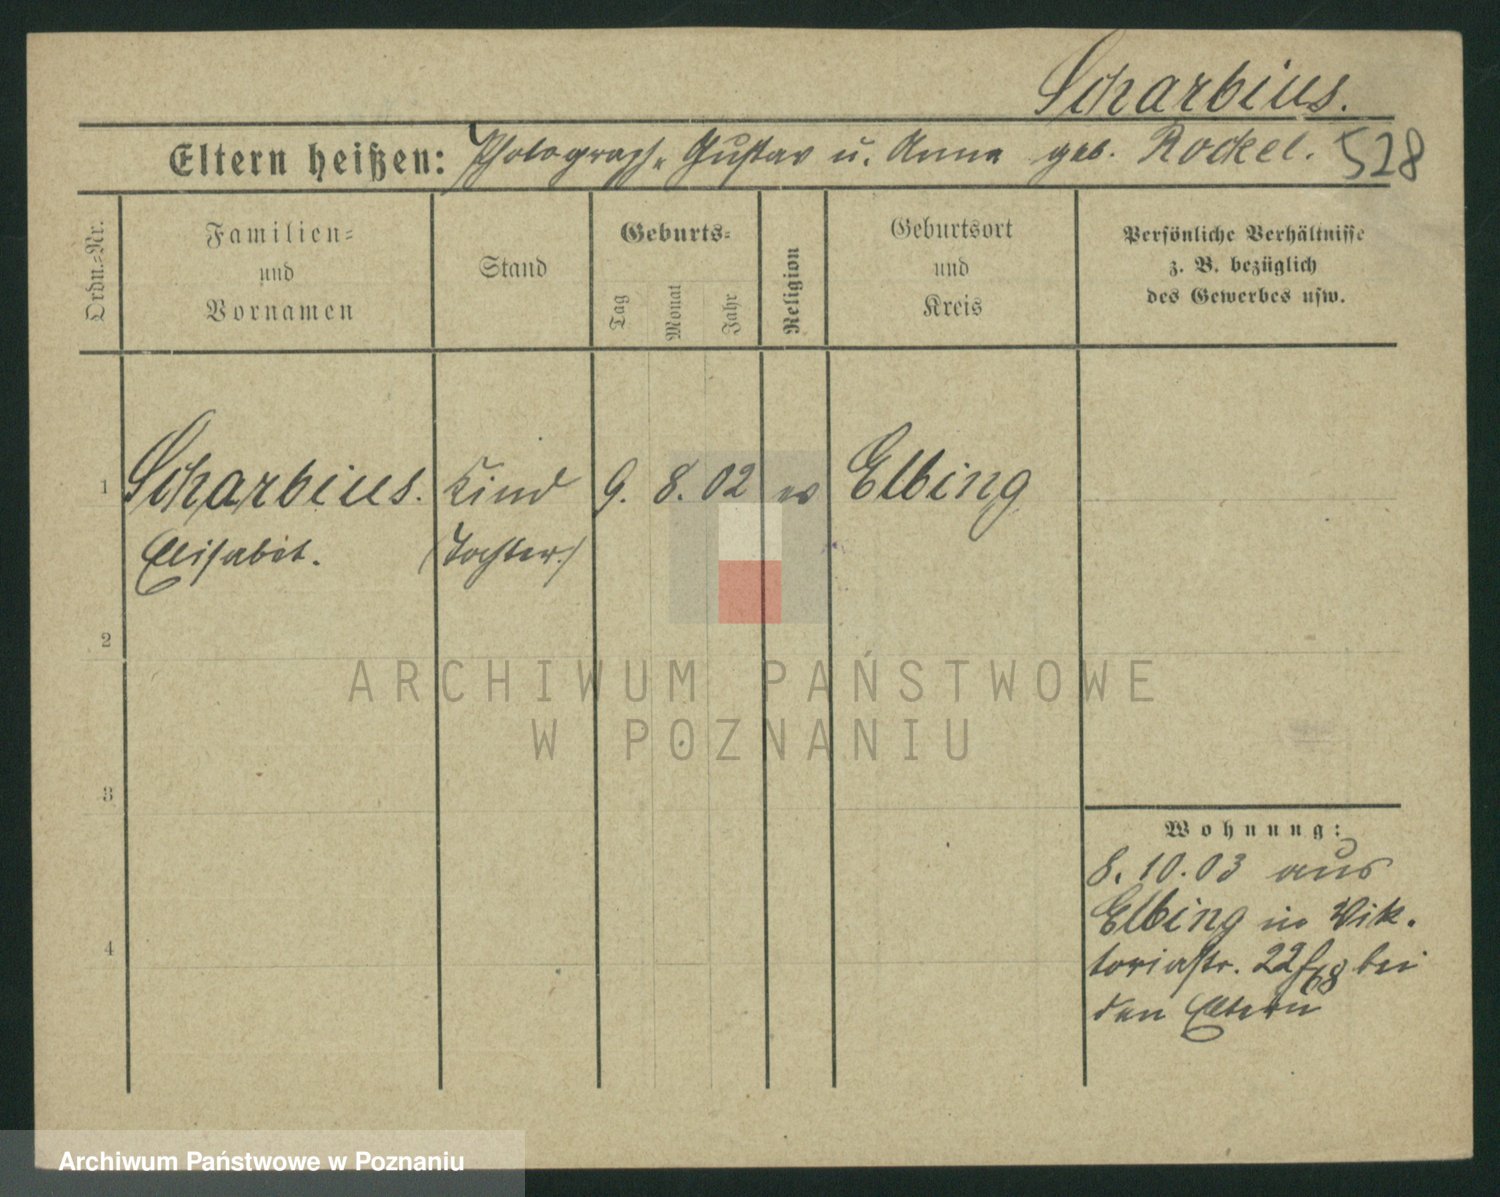 Scharbius.
Eltern heißen: Photograph Gustav u. Anna geb. Rockel. 528
Ordn.-Nr.
Familien-
und
Vornamen
Stand
Geburts-
Tag
Monat
Jahr
Religion
Geburtsort
und
Kreis
Persönliche Verhältnisse
z. B. bezüglich
des Gewerbes usw.
1 Scharbius. Kind 9. 8. 02 ev Elbing
Elisabet. (Tochter.)
2
ARCHIWUM PAŃSTWOWE
W POZNANIU
3
Wohnung:
8.10.03 aus
Elbing in Vik-
4
toriastr. 22 bei
den Eltern
Archiwum Państwowe w Poznaniu